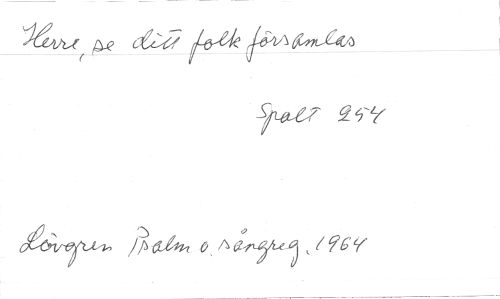 Herre, se ditt folk församlas
Spalt 254
Lövgren Psalm o. sångreg. 1964